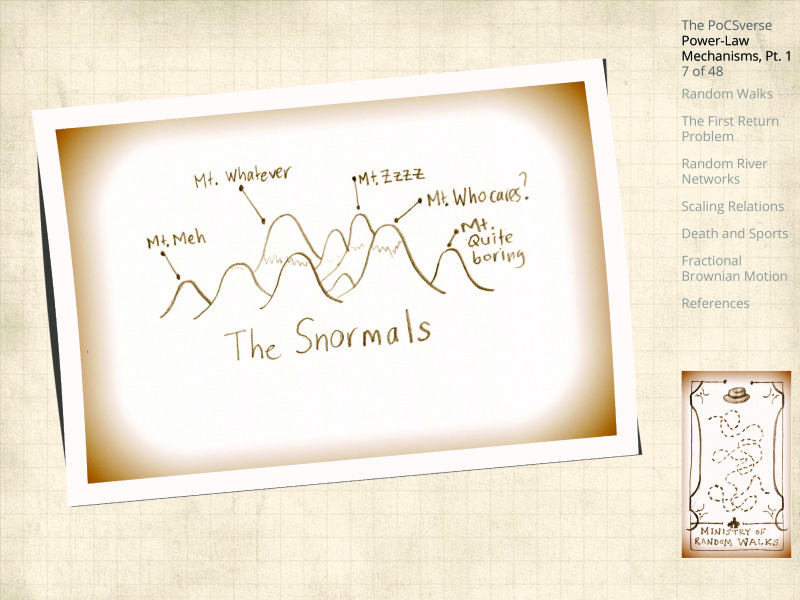 Mt. Whatever
Mt. Zzzz
Mt. Who cares?
Mt. Meh
Mt.
Quite
boring
The Snormals
The PoCSverse
Power-Law
Mechanisms, Pt. 1
7 of 48
Random Walks
The First Return
Problem
Random River
Networks
Scaling Relations
Death and Sports
Fractional
Brownian Motion
References
MINISTRY OF
RANDOM WALKS